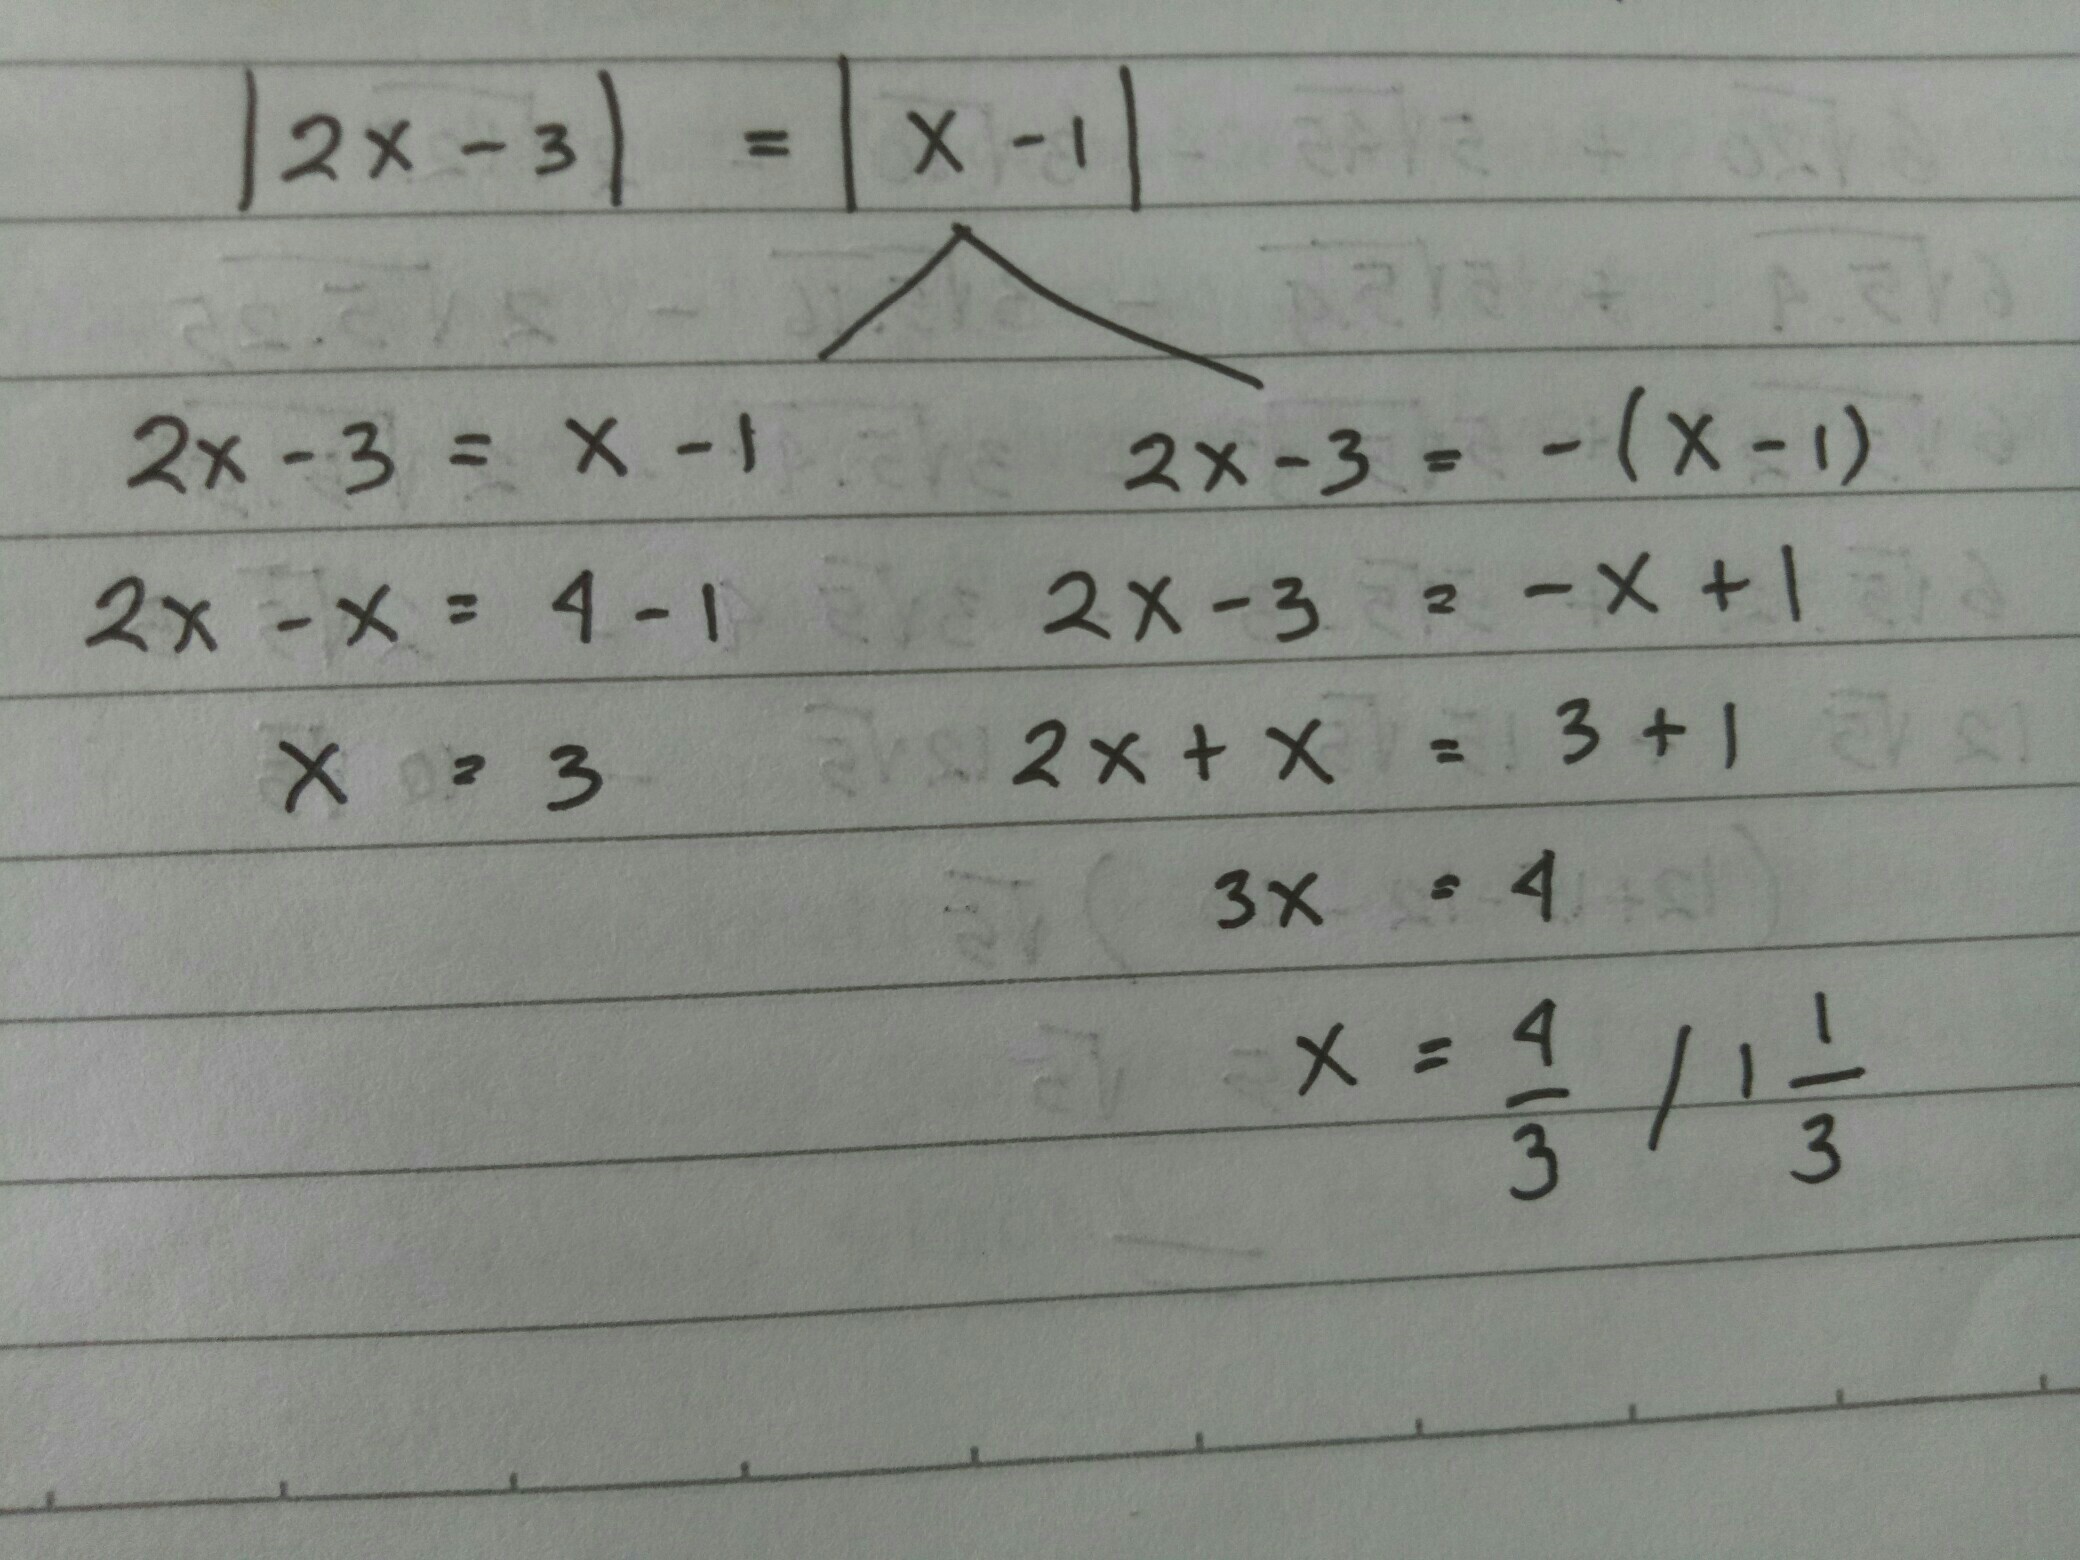 |2x - 3| = |x - 1|
2x - 3 = x - 1
2x - x = 4 - 1
x = 3
2x - 3 = -(x - 1)
2x - 3 = -x + 1
2x + x = 3 + 1
3x = 4
x = 4/3 / 1 1/3